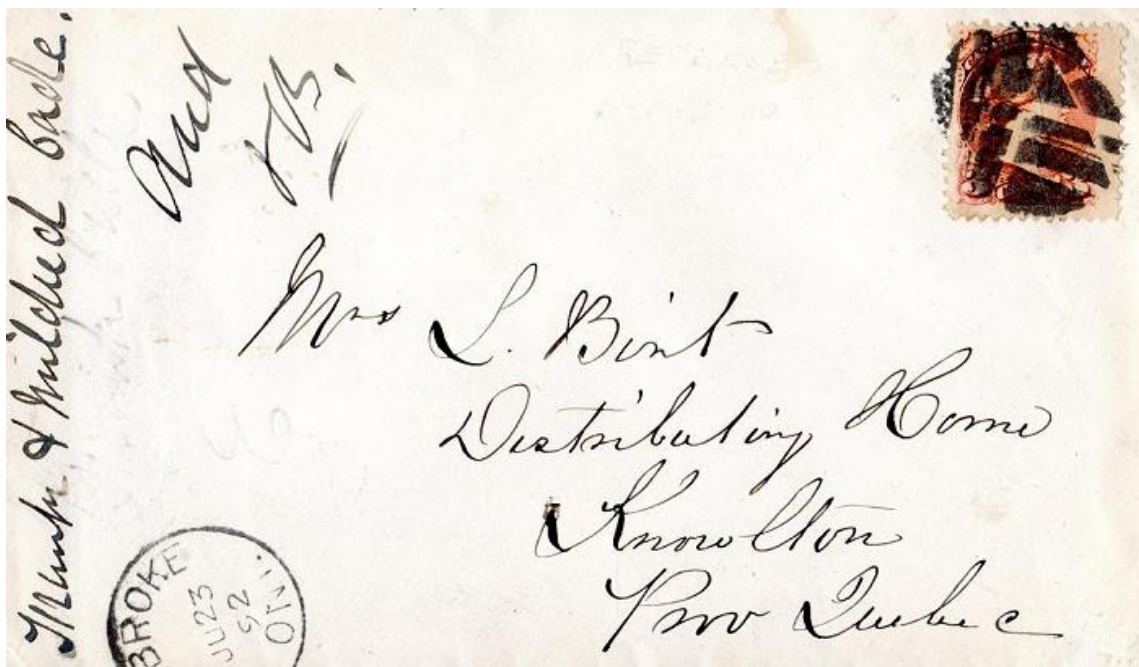 Frank & Mildred Cade.
And
Mrs L. Birt
Distributing Home
Knowlton
Prov Quebec
BROKE
JU 23
92
ONT.